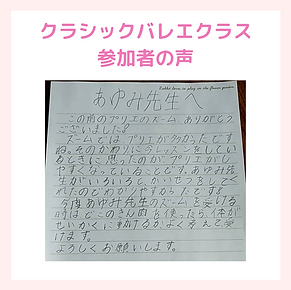 クラシックバレエクラス
参加者の声
Rabbit love to play in the flower garden
あゆみ先生へ
この前のプリエのズーム、ありがとう
ございました!
ズームでは プリエが多かったです
ね。そのかわりにうレッスンをしている
ときに思ったのがプリエがし
やすくなっていることです。あゆみ先
生がいろいろと、かいせつをしてく
れたのでわかりやすかったです!
今度あゆみ先生のズームを受ける
時はどこのきん肉を使ったら、体が
せいかくに動けるか、よく考えて受
けます。
よろしくお願いします。